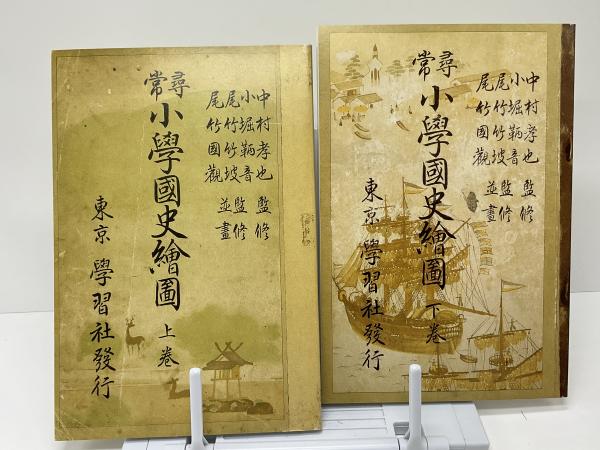 尋常
小學國史繪圖 上巻
中村孝也 監修
小堀鞆音 監修
尾竹竹坡
尾竹國觀 並畫
東京 學習社發行
尋常
小學國史繪圖 下巻
中村孝也 監修
小堀鞆音 監修
尾竹竹坡
尾竹國觀 並畫
東京 學習社發行